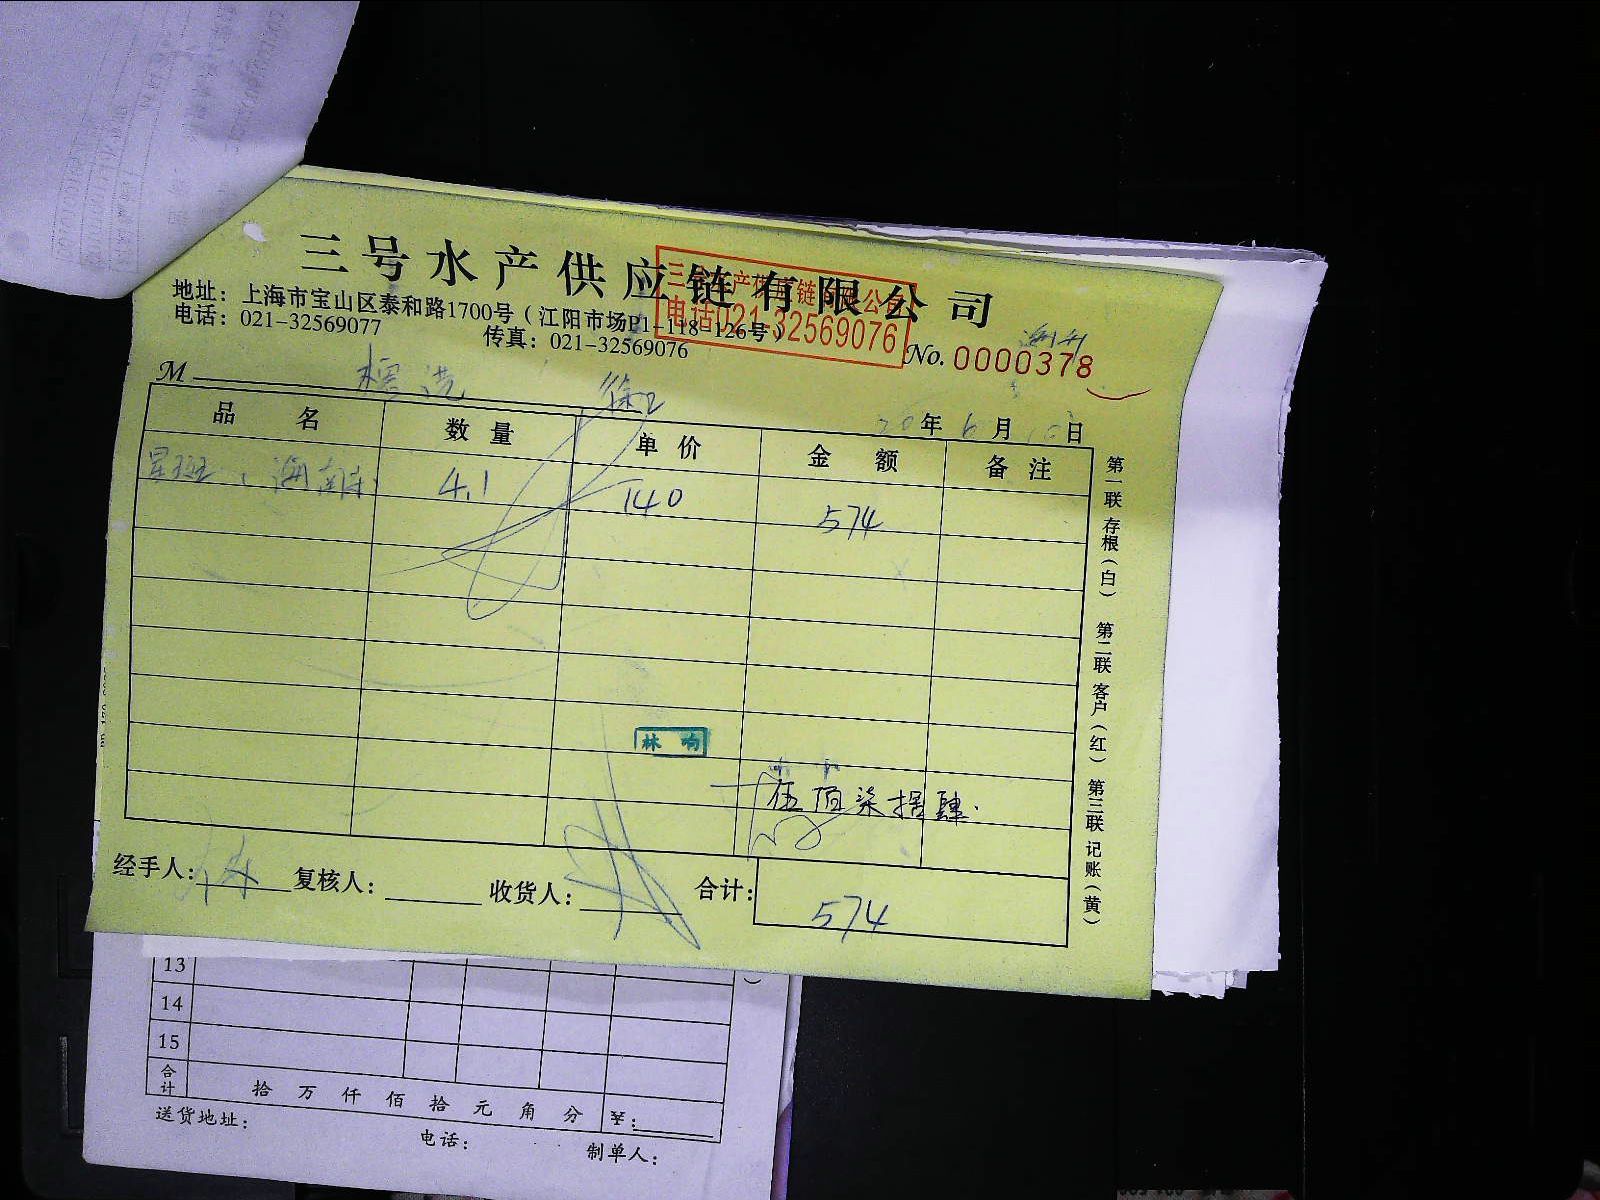 三号水产供应链有限公司
地址：上海市宝山区泰和路1700号（江阳市场P1-118-126号）
电话：021-32569077 传真：021-32569076
三号水产供应链有限公司
电话021-32569076
No. 0000378
M
20年6月10日
品名 数量 单价 金额 备注
星斑 4.1 140 574
林 响
伍佰柒拾肆
经手人： 复核人： 收货人： 合计： 574
第一联 存根（白） 第二联 客户（红） 第三联 记账（黄）
13
14
15
合计 拾 万 仟 佰 拾 元 角 分 ￥：
送货地址： 电话： 制单人：